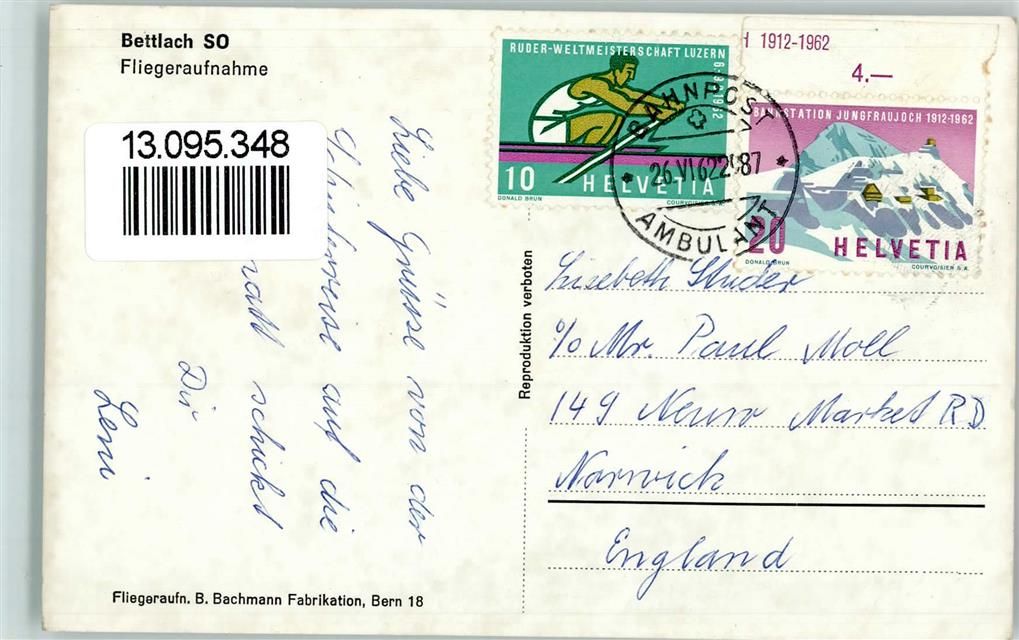 Bettlach SO
Fliegeraufnahme
13.095.348
Liebe Grüsse von der
auf die
schickt
Dir
Leni
Fliegeraufn. B. Bachmann Fabrikation, Bern 18
Reproduktion verboten
RUDER-WELTMEISTERSCHAFT LUZERN
6.-9.9.1962
10 HELVETIA
DONALD BRUN COURVOISIER S.A.
1912-1962
4.—
BAHNSTATION JUNGFRAUJOCH 1912-1962
20 HELVETIA
DONALD BRUN COURVOISIER S.A.
BAHNPOST
26.VI.62
AMBULANT
Lisebeth Studer
c/o Mr. Paul Moll
149 Newm Market RD
Norwich
England